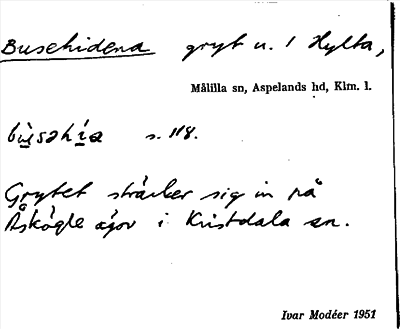 Busehidena gryt u. / Hylta,
Målilla sn, Aspelands hd, Klm. l.
bùsəhìa s. 118.
Grytet sträcker sig in på
Åskögle ägor i Kristdala sn.
Ivar Modéer 1951